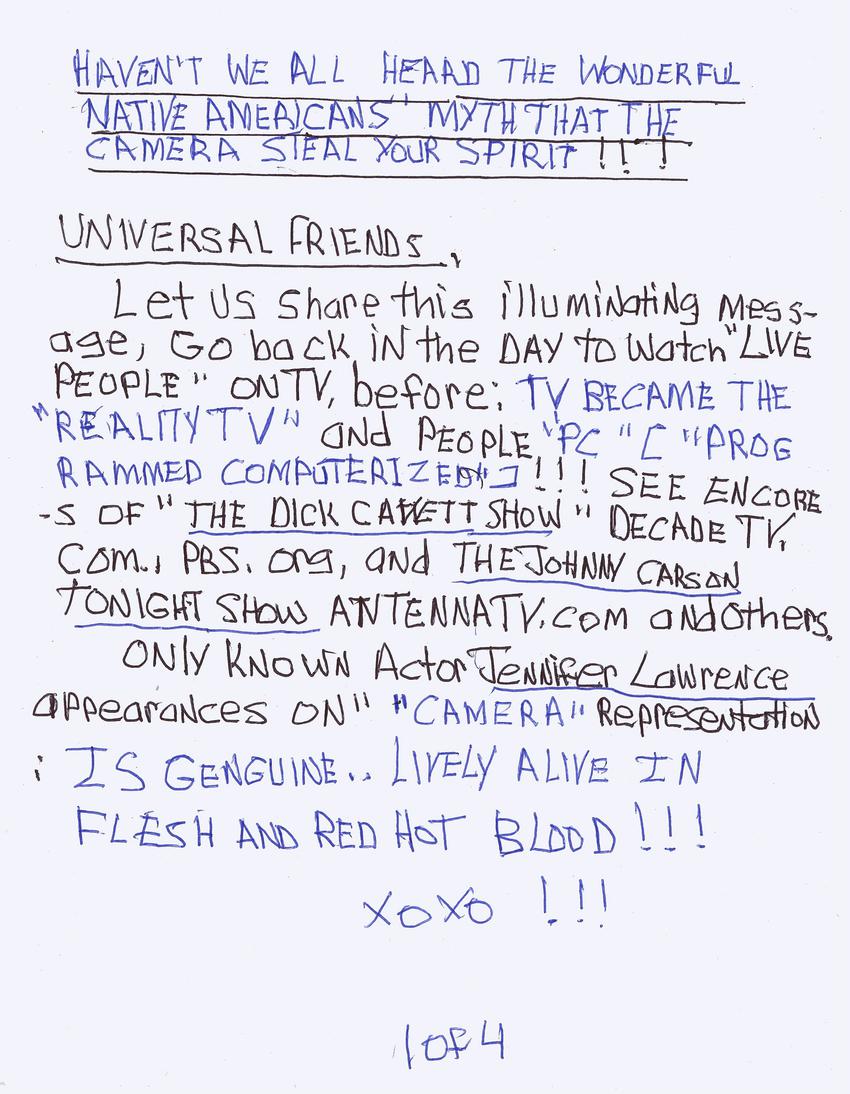 HAVEN'T WE ALL HEARD THE WONDERFUL
NATIVE AMERICANS' MYTH THAT THE
CAMERA STEAL YOUR SPIRIT !!!
UNIVERSAL FRIENDS,
Let US share this illuminating mess-
age, Go back iN the DAY to Watch "LIVE
PEOPLE" ON TV, before; TV BECAME THE
"REALITY TV" and PEOPLE "PC" [ "PROG
RAMMED COMPUTERIZED" ] !!! SEE ENCORE
-S OF "THE DICK CAVETT SHOW" DECADE TV.
Com., PBS. org, and THE JOHNNY CARSON
TONIGHT SHOW ANTENNATV.COM and others.
ONLY KNOWN Actor Jennifer Lawrence
appearances ON" "CAMERA" Representation
: IS GENGUINE.. LIVELY ALIVE IN
FLESH AND RED HOT BLOOD !!!
XOXO !!!
1 of 4